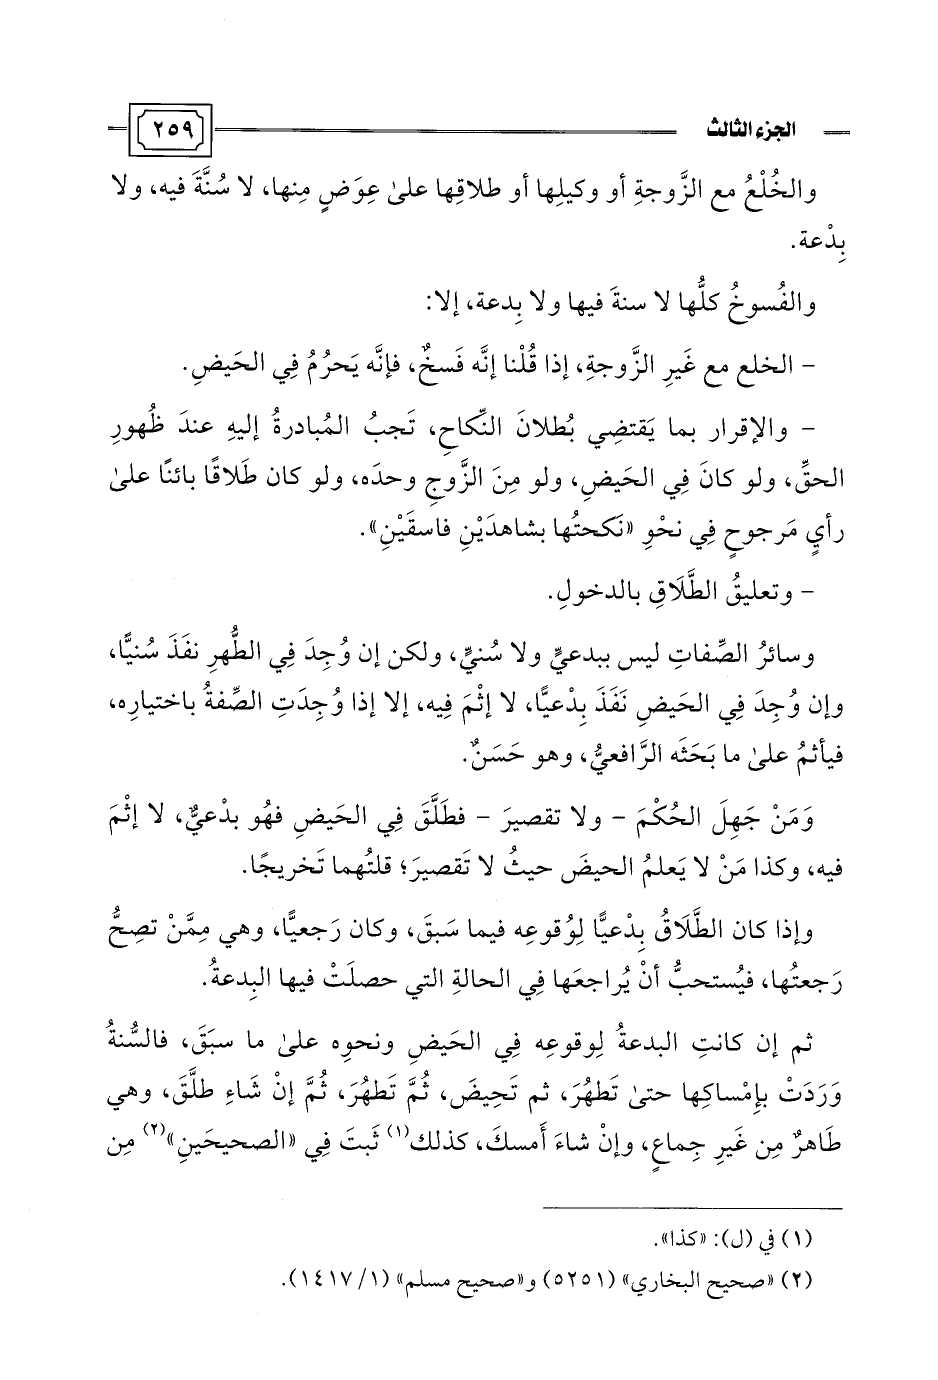 الجزء الثالث ٢٥٩
والخُلْعُ مع الزَّوجةِ أو وكيلِها أو طلاقِها علىٰ عِوَضٍ مِنها، لا سُنَّةَ فيه، ولا
بِدْعة.
والفُسوخُ كلُّها لا سنةَ فيها ولا بِدعة، إلا:
- الخلع مع غَيرِ الزَّوجةِ، إذا قُلْنا إنَّه فَسخٌ، فإنَّه يَحرُمُ فِي الحَيضِ.
- والإقرار بما يَقتضِي بُطلانَ النِّكاحِ، تَجبُ المُبادرةُ إليهِ عندَ ظُهورِ
الحقِّ، ولو كانَ فِي الحَيضِ، ولو مِنَ الزَّوجِ وحدَه، ولو كان طَلاقًا بائنًا علىٰ
رأيٍ مَرجوحٍ فِي نحْوِ «نَكحتُها بشاهدَيْنِ فاسقَيْنِ».
- وتعليقُ الطَّلَاقِ بالدخولِ.
وسائرُ الصِّفاتِ ليس ببدعيٍّ ولا سُنيٍّ، ولكن إن وُجِدَ فِي الطُّهرِ نفَذَ سُنيًّا،
وإن وُجِدَ فِي الحَيضِ نَفَذَ بِدْعيًّا، لا إثْمَ فِيه، إلا إذا وُجِدَتِ الصِّفةُ باختيارِه،
فيأثمُ علىٰ ما بَحَثَه الرَّافعيُّ، وهو حَسَنٌ.
وَمَنْ جَهِلَ الحُكْمَ - ولا تقصيرَ - فطَلَّقَ فِي الحَيضِ فهُو بدْعيٌّ، لا إثْمَ
فيه، وكذا مَنْ لا يَعلمُ الحيضَ حيثُ لا تَقصيرَ؛ قلتُهما تَخريجًا.
وإذا كان الطَّلَاقُ بِدْعيًّا لِوُقوعِه فيما سَبقَ، وكان رَجعيًّا، وهي مِمَّنْ تصِحُّ
رَجعتُها، فيُستحبُّ أنْ يُراجعَها فِي الحالةِ التي حصلَتْ فيها البِدعةُ.
ثم إن كانتِ البدعةُ لِوقوعِه فِي الحَيضِ ونحوِه علىٰ ما سبَقَ، فالسُّنةُ
وَرَدَتْ بإمْساكِها حتىٰ تَطهُرَ، ثم تَحِيضَ، ثُمَّ تَطهُرَ، ثُمَّ إنْ شَاءِ طلَّقَ، وهي
طاهرٌ مِن غَيرِ جِماعٍ، وإنْ شاءَ أَمسكَ، كذلك(١) ثَبتَ فِي «الصحيحَينِ»(٢) مِن
(١) في (ل): «كذا».
(٢) «صحيح البخاري» (٥٢٥١) و«صحيح مسلم» (١/ ١٤١٧).